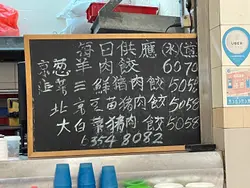 每日供應 (水)(煎)
京葱羊肉餃 60 70
三鮮豬肉餃 50 58
北京茴苗豬肉餃 50 58
大白菜豬肉餃 50 58
5354 8082